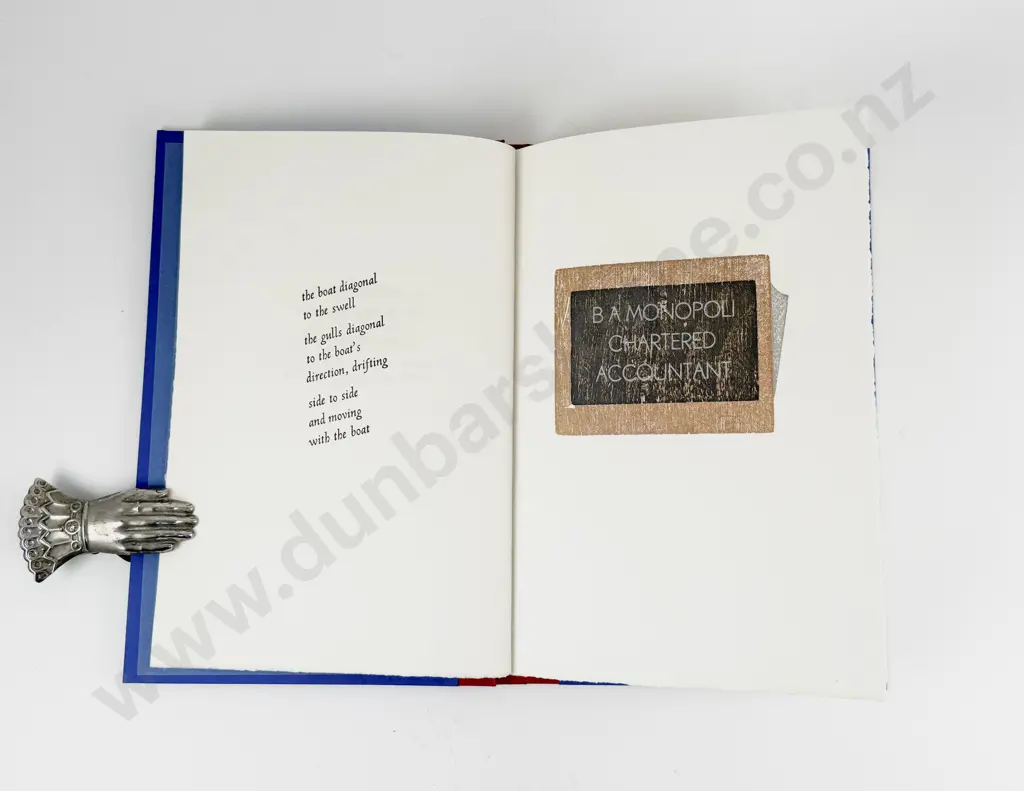 the boat diagonal
to the swell
the gulls diagonal
to the boat's
direction, drifting
side to side
and moving
with the boat
B A MONOPOLI
CHARTERED
ACCOUNTANT